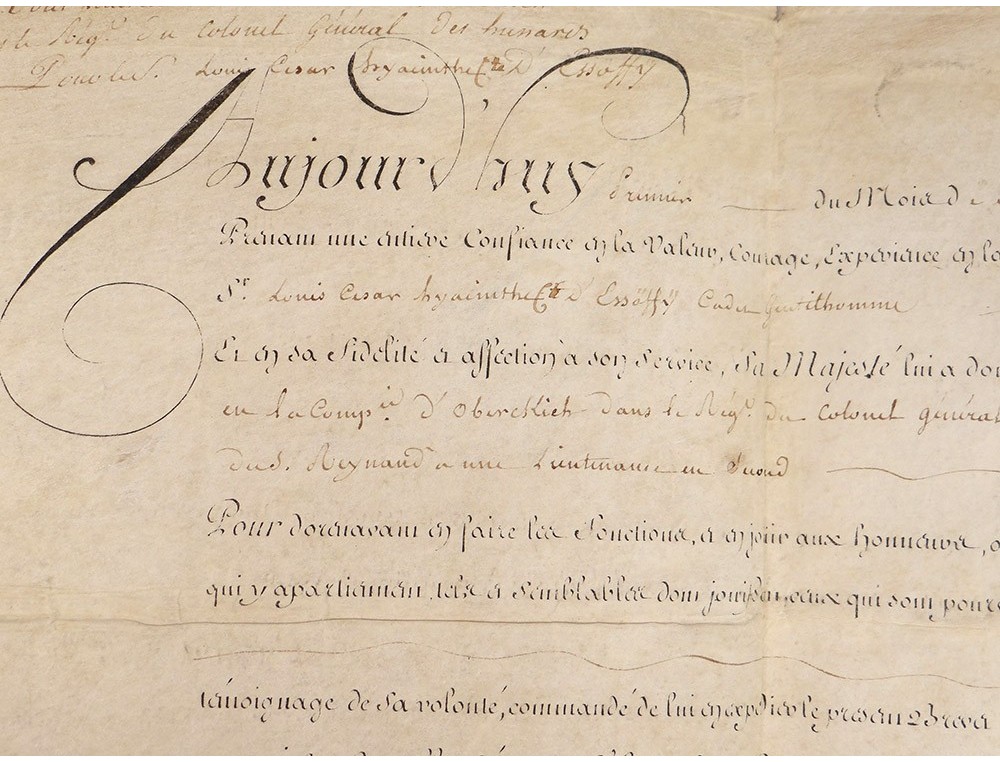 le Régt. du Colonel Général des hussards
Pour le S. Louis Cesar hyacinthe Cte D'Essöffÿ
Aujourd'huy Premier du Mois de
Prenant une entiere Confiance en la Valeur, Courage, Expérience, en la
Sr. Louis Cesar hyacinthe Cte D'Essöffÿ Cadet Gentilhomme
Et en sa Fidelité et affection à son service, Sa Majesté lui a don
en la Compie. d'Oberckich dans le Régt. du Colonel général
du S. Reynaud a une Lieutenance en Second
Pour dorenavant en faire les Fonctions, et en jouir aux honneurs,
qui y apartiennent, tels et semblables dont jouissent ceux qui sont pourv
témoignage de sa volonté, commandé de lui en expédier le present Brevet